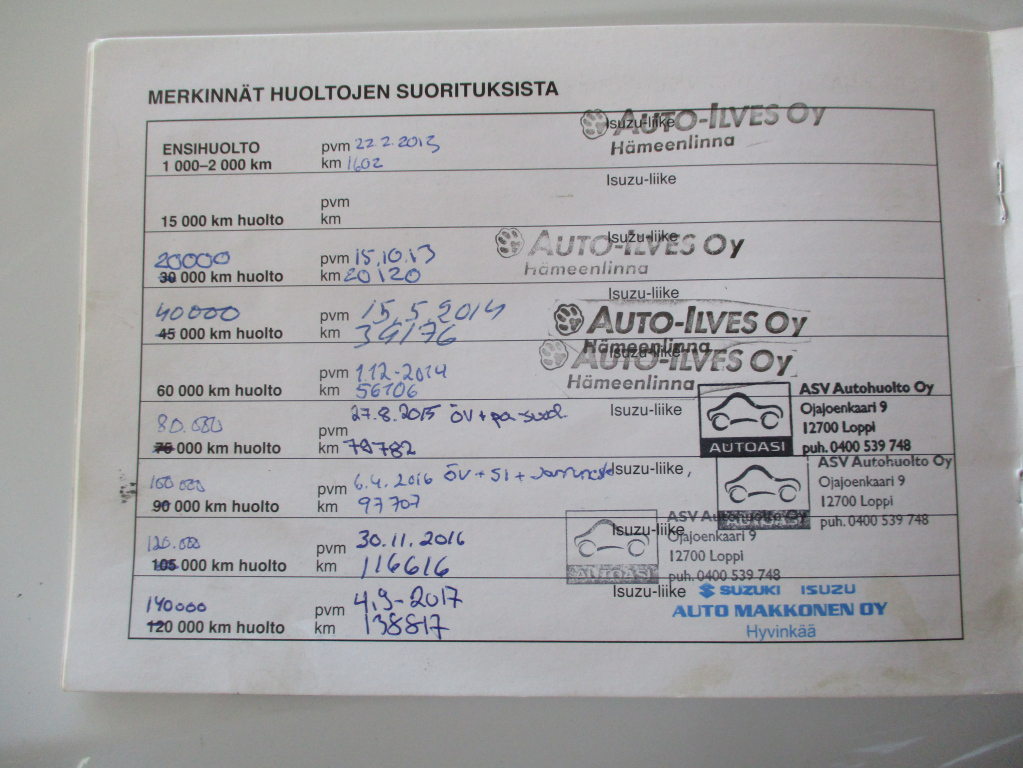 MERKINNÄT HUOLTOJEN SUORITUKSISTA
ENSIHUOLTO
1 000–2 000 km
pvm 22.2.2013
km 1602
Isuzu-liike
AUTO-ILVES Oy
Hämeenlinna
15 000 km huolto
pvm
km
Isuzu-liike
20000
30 000 km huolto
pvm 15.10.13
km 20120
Isuzu-liike
AUTO-ILVES Oy
Hämeenlinna
40000
45 000 km huolto
pvm 15.5.2014
km 39176
Isuzu-liike
AUTO-ILVES Oy
Hämeenlinna
60 000 km huolto
pvm 1.12-2014
km 56106
Isuzu-liike
AUTO-ILVES Oy
Hämeenlinna
80.000
75 000 km huolto
pvm 27.8.2015 ÖV+pa-suod.
km 79782
Isuzu-liike
AUTOASI
ASV Autohuolto Oy
Ojajoenkaari 9
12700 Loppi
puh. 0400 539 748
100 000
90 000 km huolto
pvm 6.4.2016 ÖV+SI+
km 97707
Isuzu-liike
AUTOASI
ASV Autohuolto Oy
Ojajoenkaari 9
12700 Loppi
puh. 0400 539 748
120.000
105 000 km huolto
pvm 30.11.2016
km 116616
Isuzu-liike
AUTOASI
ASV Autohuolto Oy
Ojajoenkaari 9
12700 Loppi
puh. 0400 539 748
140000
120 000 km huolto
pvm 4.9-2017
km 138817
Isuzu-liike
SUZUKI ISUZU
AUTO MAKKONEN OY
Hyvinkää